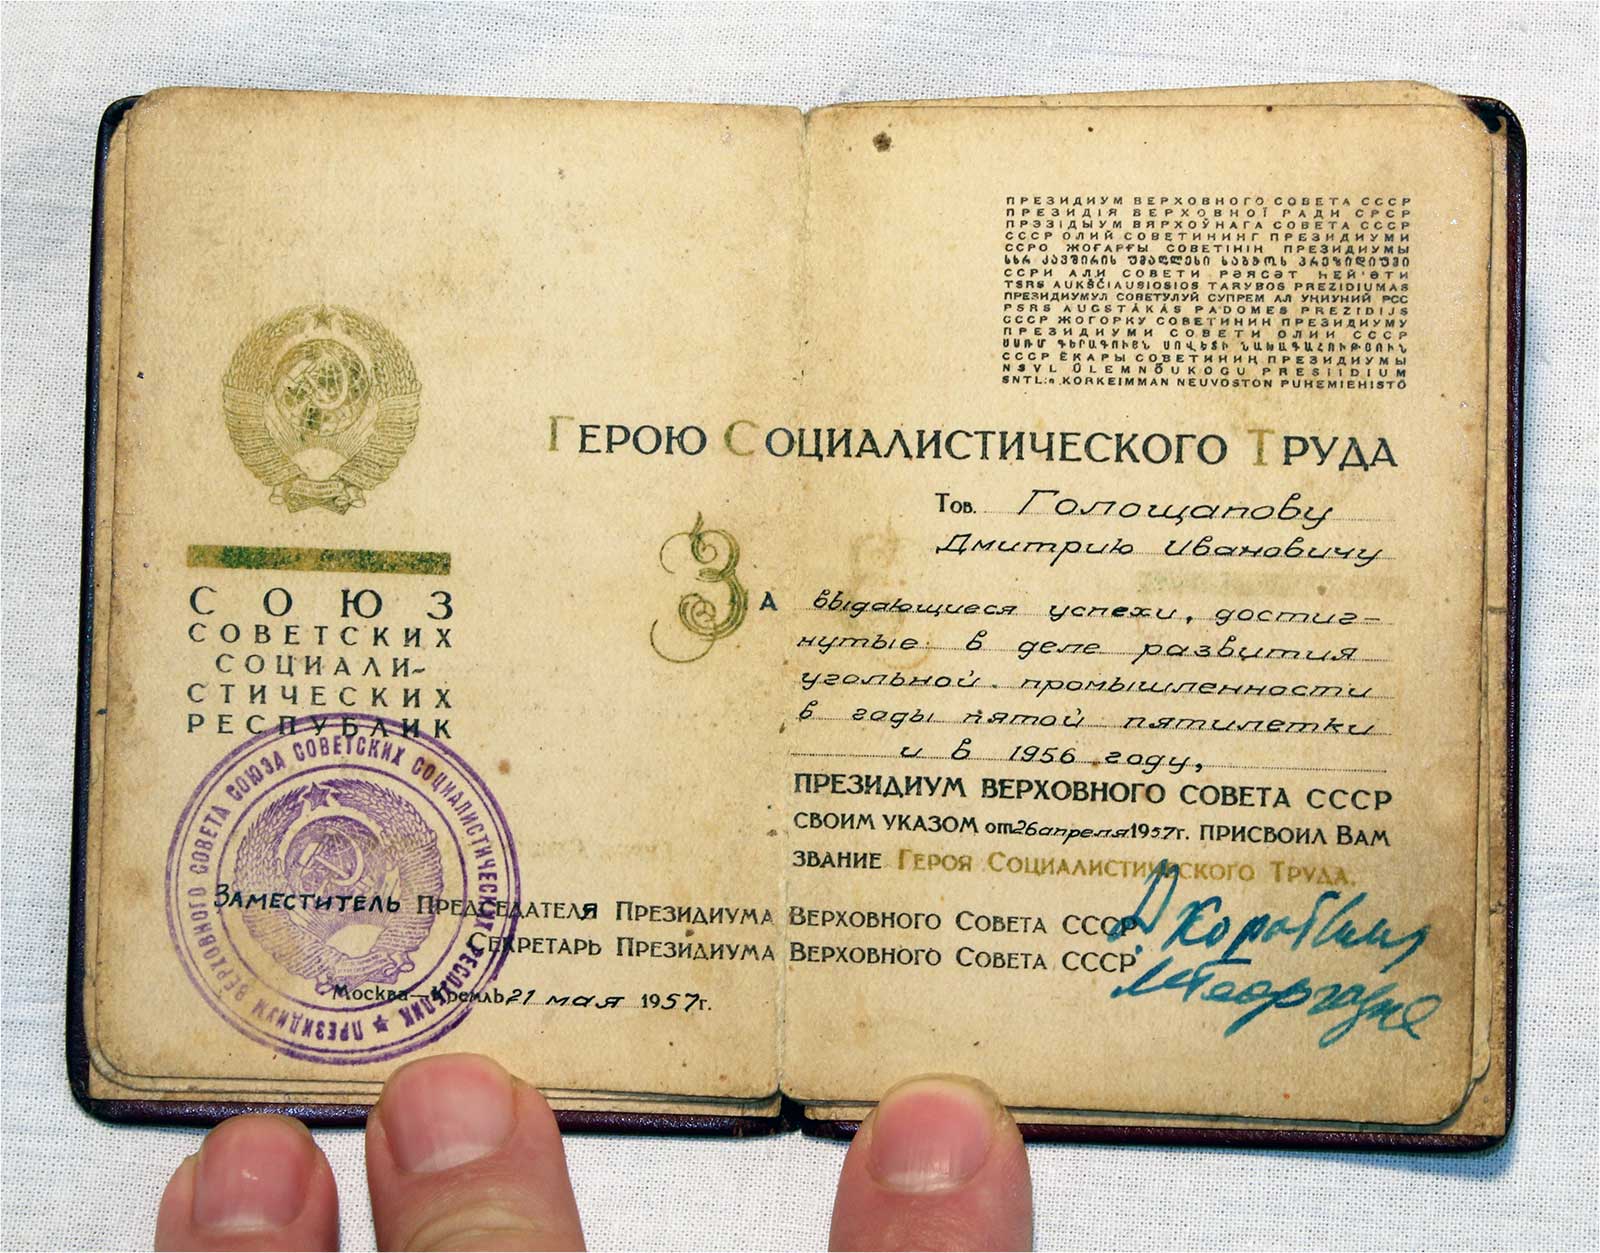 СОЮЗ
СОВЕТСКИХ
СОЦИАЛИ-
СТИЧЕСКИХ
РЕСПУБЛИК
ПРЕЗИДИУМ ВЕРХОВНОГО СОВЕТА СОЮЗА СОВЕТСКИХ СОЦИАЛИСТИЧЕСКИХ РЕСПУБЛИК
ПРЕЗИДИУМ ВЕРХОВНОГО СОВЕТА СССР
ПРЕЗИДІЯ ВЕРХОВНОЇ РАДИ СРСР
ПРЭЗІДЫУМ ВЯРХОЎНАГА СОВЕТА СССР
СССР ОЛИЙ СОВЕТИНИНГ ПРЕЗИДИУМИ
ССРО ЖОҒАРҒЫ СОВЕТІНІҢ ПРЕЗИДИУМЫ
სსრ კავშირის უმაღლესი საბჭოს პრეზიდიუმი
ССРИ АЛИ СОВЕТИ РӘЯСӘТ ҺЕЙ'ӘТИ
TSRS AUKŠČIAUSIOSIOS TARYBOS PREZIDIUMAS
ПРЕЗИДИУМУЛ СОВЕТУЛУЙ СУПРЕМ АЛ УНИУНИЙ РСС
PSRS AUGSTĀKĀS PADOMES PREZIDIJS
СССР ЖОГОРКУ СОВЕТИНИН ПРЕЗИДИУМУ
ПРЕЗИДИУМИ СОВЕТИ ОЛИИ СССР
ՍՍՌՄ ԳԵՐԱԳՈՒՅՆ ՍՈՎԵՏԻ ՆԱԽԱԳԱՀՈՒԹՅՈՒՆ
СССР ЁКАРЫ СОВЕТИНИҢ ПРЕЗИДИУМЫ
NSVL ÜLEMNÕUKOGU PRESIIDIUM
SNTL:n KORKEIMMAN NEUVOSTON PUHEMIEHISTÖ
ГЕРОЮ СОЦИАЛИСТИЧЕСКОГО ТРУДА
Тов. Голощапову
Дмитрию Ивановичу
ЗА выдающиеся успехи, достиг-
нутые в деле развития
угольной промышленности
в годы пятой пятилетки
и в 1956 году,
ПРЕЗИДИУМ ВЕРХОВНОГО СОВЕТА СССР
СВОИМ УКАЗОМ от 26 апреля 1957г. ПРИСВОИЛ ВАМ
ЗВАНИЕ ГЕРОЯ СОЦИАЛИСТИЧЕСКОГО ТРУДА.
ЗАМЕСТИТЕЛЬ ПРЕДСЕДАТЕЛЯ ПРЕЗИДИУМА ВЕРХОВНОГО СОВЕТА СССР
СЕКРЕТАРЬ ПРЕЗИДИУМА ВЕРХОВНОГО СОВЕТА СССР
Москва—Кремль 21 мая 1957г.